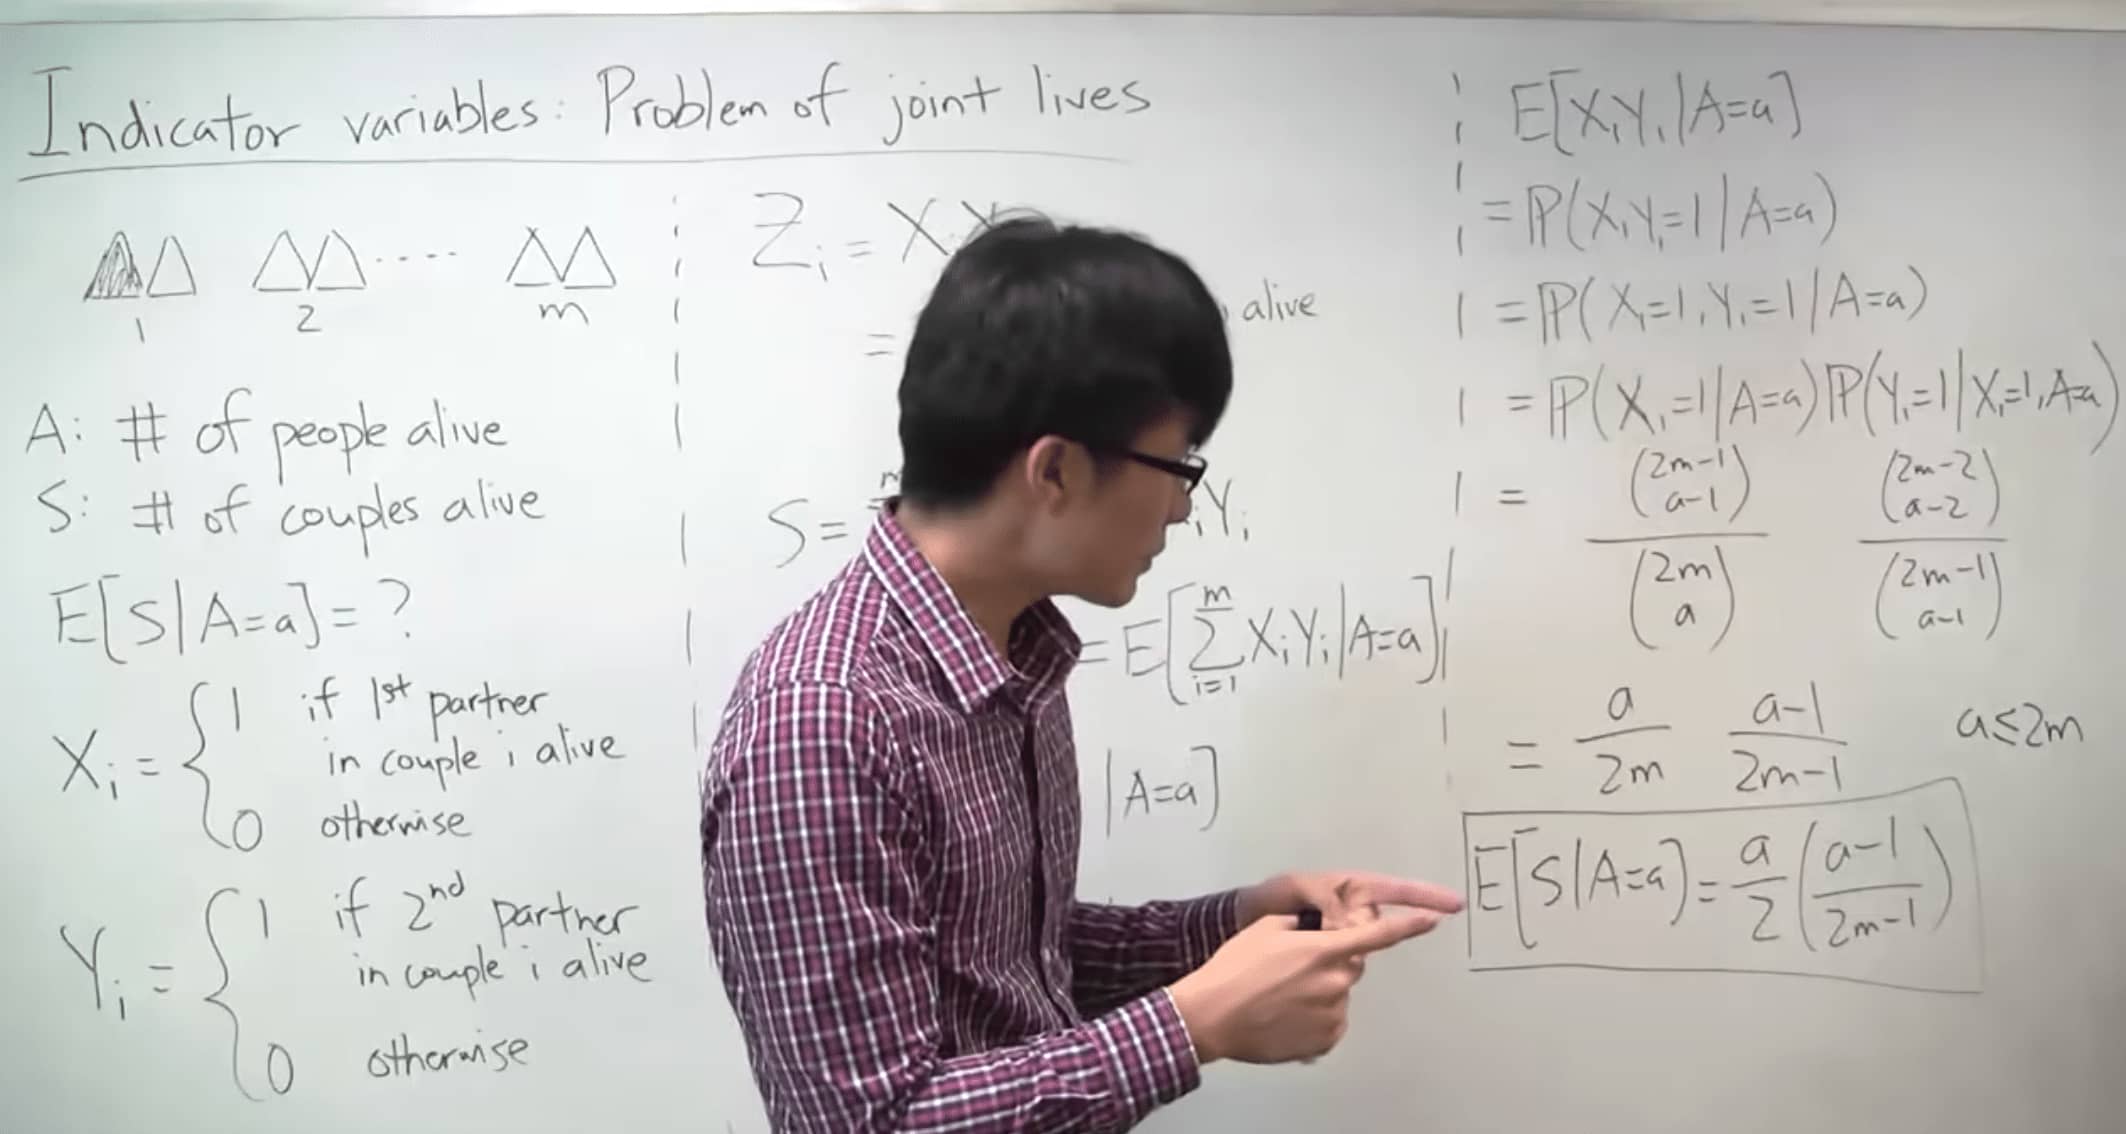 Indicator variables: Problem of joint lives
1 2 m
A: # of people alive
S: # of couples alive
E[S|A=a]=?
X_i = { 1 if 1st partner
in couple i alive
0 otherwise
Y_i = { 1 if 2nd partner
in couple i alive
0 otherwise
Z_i = X
= alive
S = _iY_i
= E[∑_{i=1}^{m} X_iY_i|A=a]
|A=a]
E[X_1Y_1|A=a]
= ℙ(X_1Y_1=1|A=a)
= ℙ(X_1=1,Y_1=1|A=a)
= ℙ(X_1=1|A=a)ℙ(Y_1=1|X_1=1,A=a)
= (2m-1 a-1)/(2m a) (2m-2 a-2)/(2m-1 a-1)
= a/2m (a-1)/(2m-1) a≤2m
E[S|A=a] = a/2 ((a-1)/(2m-1))